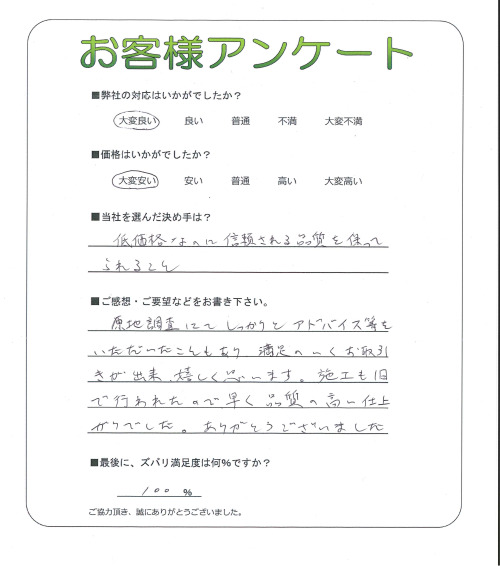 お客様アンケート
■弊社の対応はいかがでしたか？
大変良い 良い 普通 不満 大変不満
■価格はいかがでしたか？
大変安い 安い 普通 高い 大変高い
■当社を選んだ決め手は？
低価格なのに信頼される品質を保って
られること
■ご感想・ご要望などをお書き下さい。
原地調査にてしっかりとアドバイズ等を
いただいたこともあり 満足のいくお取引
きが出来、嬉しく思います。施工も1日
で行われたので早く品質の高い仕上
がりでした。ありがとうございました
■最後に、ズバリ満足度は何%ですか？
100 %
ご協力頂き、誠にありがとうございました。